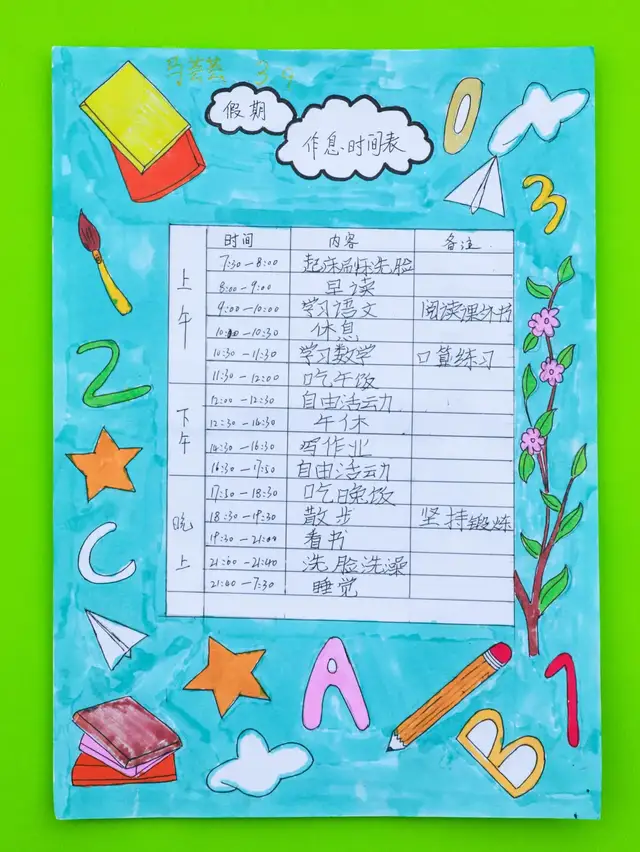 3.4
假期
作息时间表
时间 内容 备注
上午
7:30—8:00 起床刷牙洗脸
8:00—9:00 早读
9:00—10:00 学习语文 阅读课外书
10:00—10:30 休息
10:30—11:30 学习数学 口算练习
11:30—12:00 吃午饭
下午
12:00—12:30 自由活动
12:30—14:30 午休
14:30—16:30 写作业
16:30—17:50 自由活动
晚上
17:50—18:30 吃晚饭
18:30—19:30 散步 坚持锻炼
19:30—21:00 看书
21:00—21:40 洗脸洗澡
21:40—7:30 睡觉
0
3
2
C
A
B
1